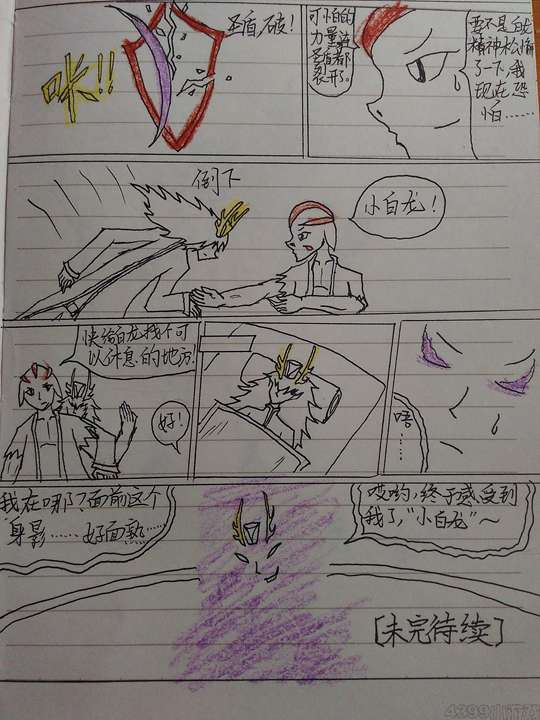 圣盾破！
咔!!
可怕的
力量连
圣盾都
裂开了。
要不是白龙
了一下，我
现在恐
怕……
倒下
小白龙！
快给白龙找个可
以休息的地方.
好！
唔
……
我在哪了？面前这个
身影……好面熟……
哎哟，终于感受到
我了，“小白龙”～
[未完待续]